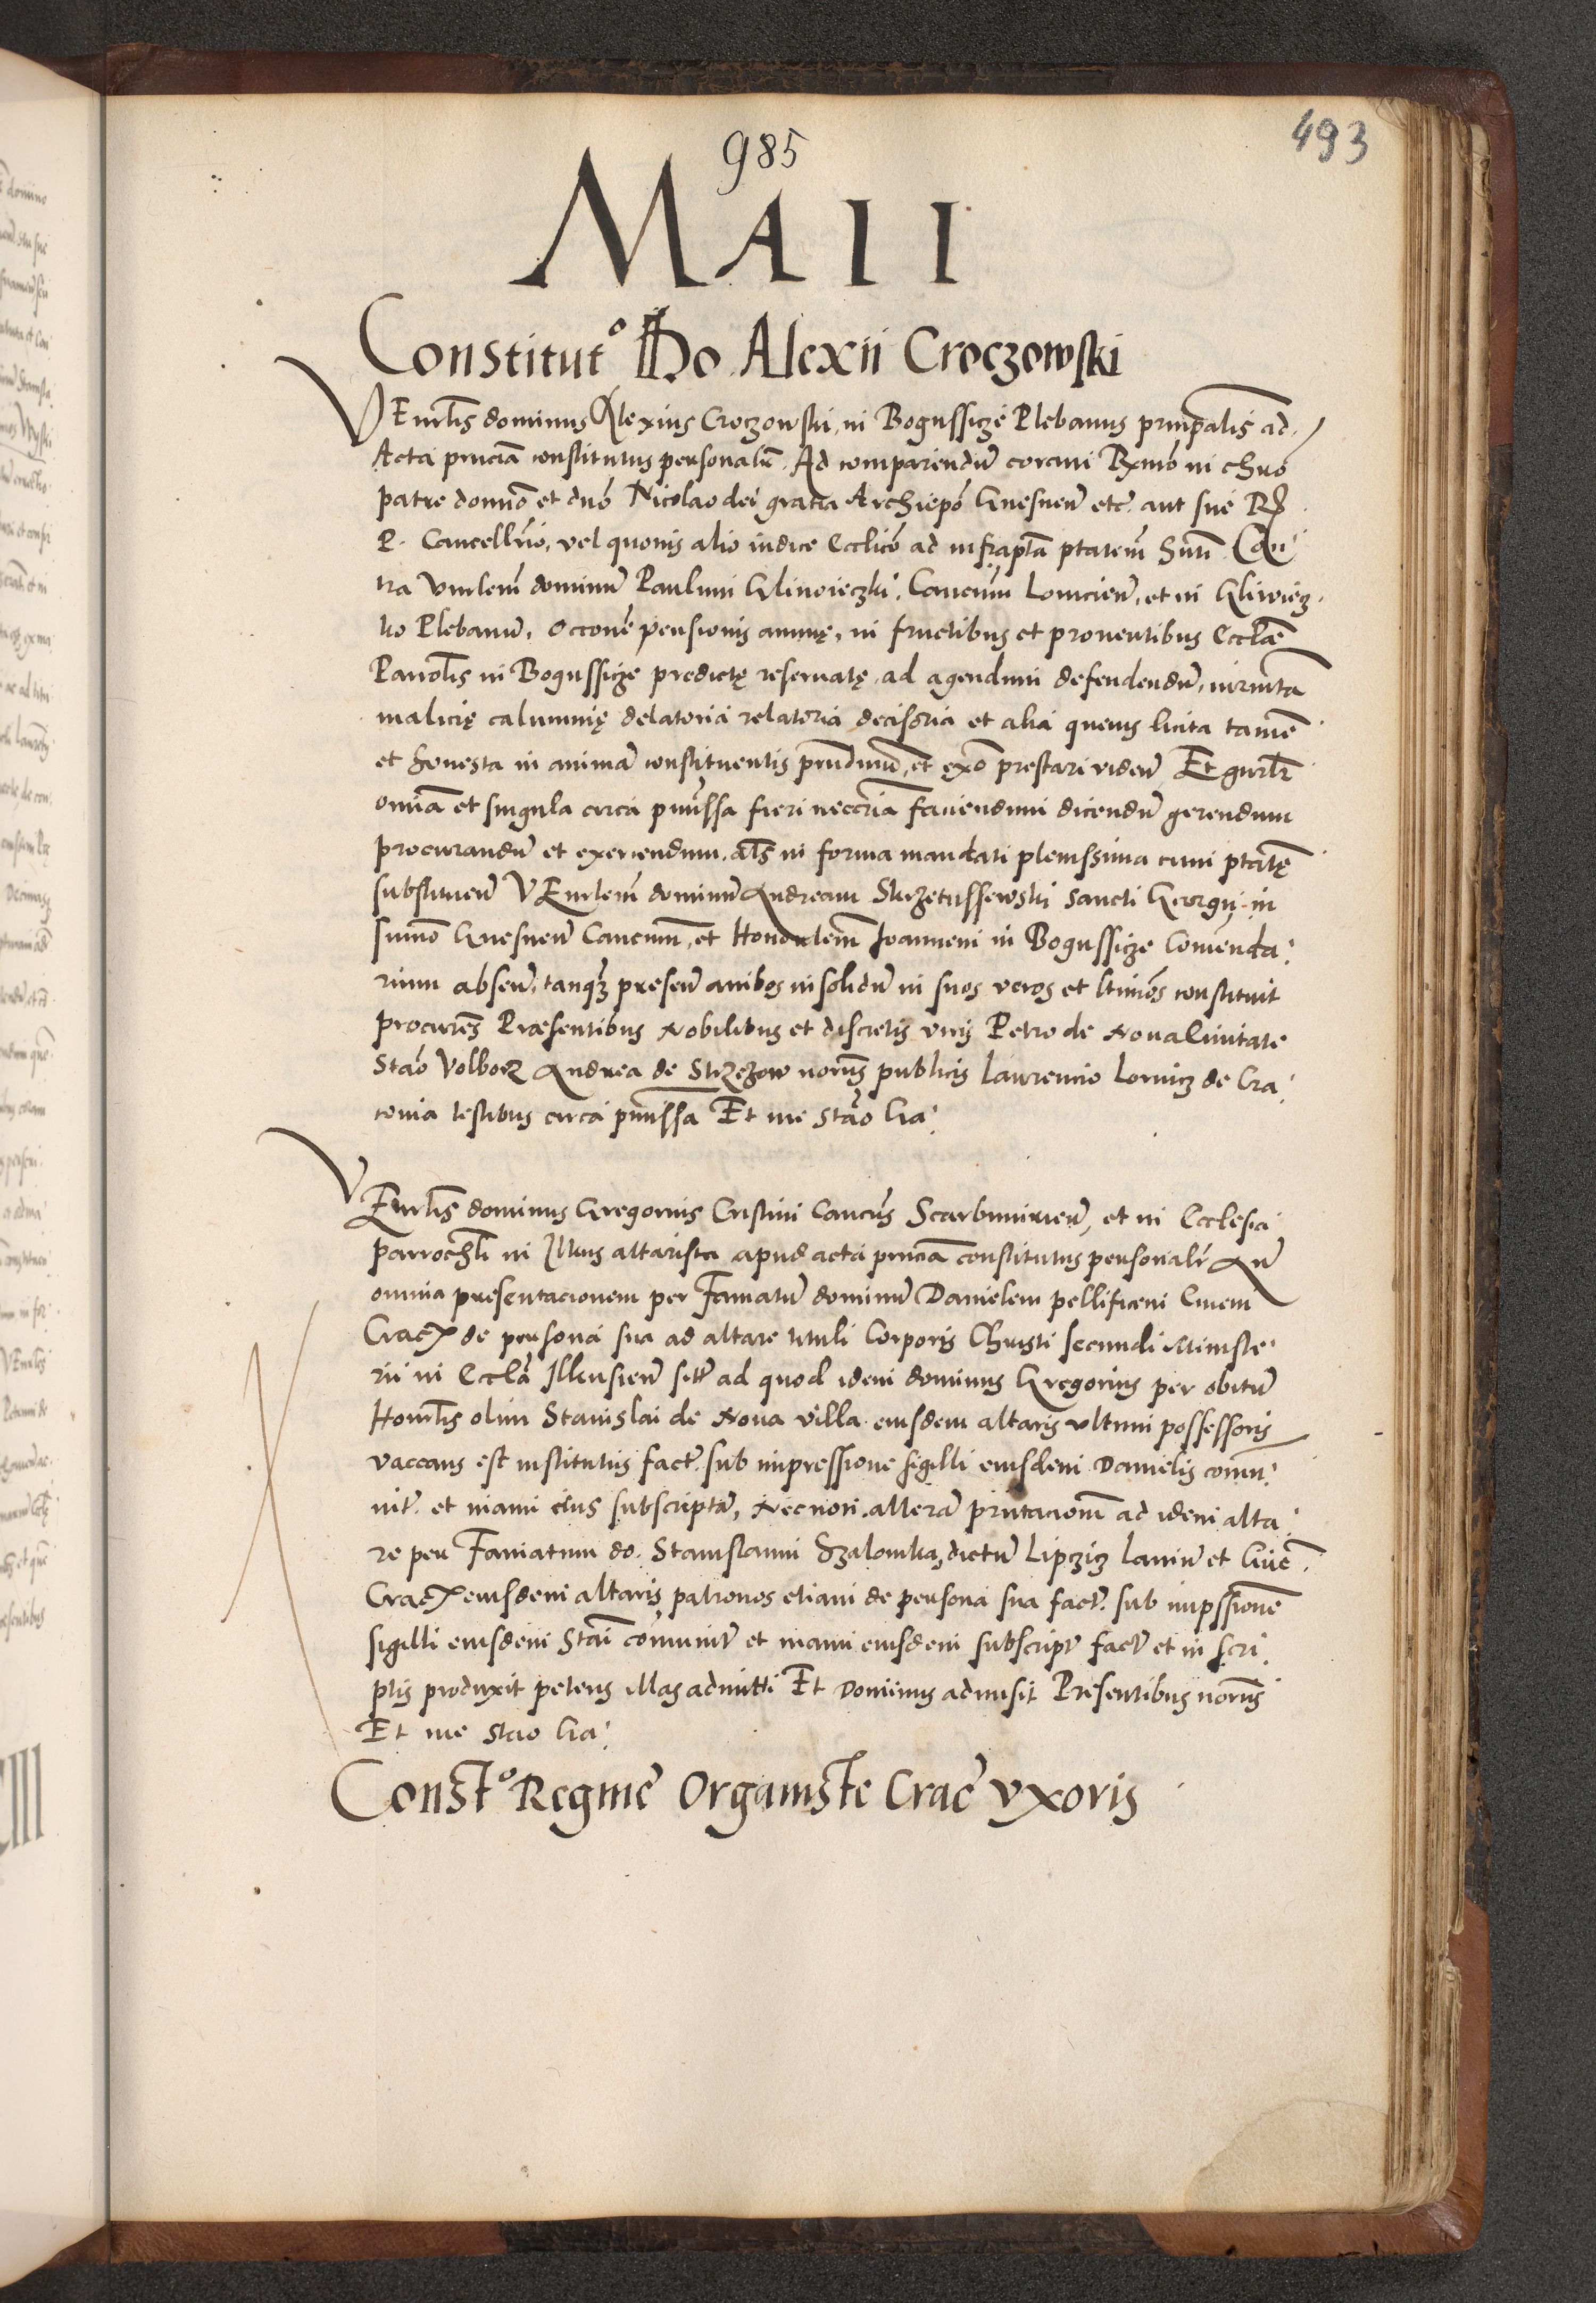 493
985
MAII
Constitut° Do Alexii Croczowski
VEnrlis dominus Alexius Croczowski in Bogussicze Plebanus prinpalis ad
Acta pncia constitutus personalr Ad comparendu coram Rxmo in chro
patre domio et dno Nicolao dei gratia Archiepo Gnesnen etc aut sue R
P. Cancellrio, vel quovis alio iudice Ecclico ad infraptam ptatem Sum Con
tra Vnrlem dominu Paulum Glinieczki Canonicum Lovicien, et in
ko Plebanu, Occone pensionis annue, in fructibus et proventibus Ecclae
Parrolis in Bogussicze predicte reservate ad agendum defendendu, iurmta
malicie calumnie delatoria relatoria decisoria et alia quevis licita tame
et honesta in anima constituentis prestandum et prestari viden Et gnrlr
omia et singula circa pmissa fieri neccria faciendum dicendu gerendum
procurandu et exercendum als in forma mandati plenissima cum ptate
substituen VEnrlem dominu Andream Skrzetussewski Sancti Georgii in
summo Gnesnen Canonicum, et Honorlem Joannem in Bogussicze Comenda
rium absen tanqz presen ambos insolidu in suos veros et ltimos constituit
procures Praesentibus Nobilibus et discretis viris Petro de Nova Civitate
Stao Volborz Andrea de Strzezow noriis publicis Laurencio Lornicz de Cra
covia testibus circa pmissa Et me Stao Cra
VEnrlis dominus Gregorius Cristini Canonicus Scarbimirien, et in Ecclesia
parrochli in Ilkus altarista apud acta pncia constitutus personalr An
omnia presentacionem per Famatu dominu Danielem pellificem Civem
Crac de persona sua ad altare tituli Corporis Christi secundi Ministe
rii in Eccla Ilkusien situ ad quod idem dominus Gregorius per obitu
Honrlis olim Stanislai de Nova villa eiusdem altaris ultimi possessoris
vaccans est institutus fact sub impressione sigilli eiusdem Danielis comu
nit et manu eius subscripta, Necnon altera pntacionem ad idem alta
re per Famatum do. Stanislaum Szalomka dictu Lipczicz laniu et Cive
Crac eiusdem altaris patronos etiam de persona sua fact. sub impssione
sigilli eiusdem Stai comunit et manu eiusdem subscript fact et in scri
ptis produxit petens illas admitti Et Dominus admisit Presentibus noriis
Et me Stao Cra
Const° Regine Organiste Crac vxoris